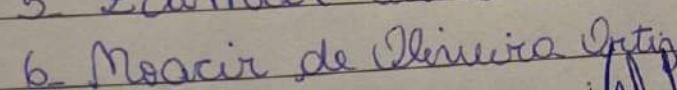 6- Moacir de Oliveira Ortiz